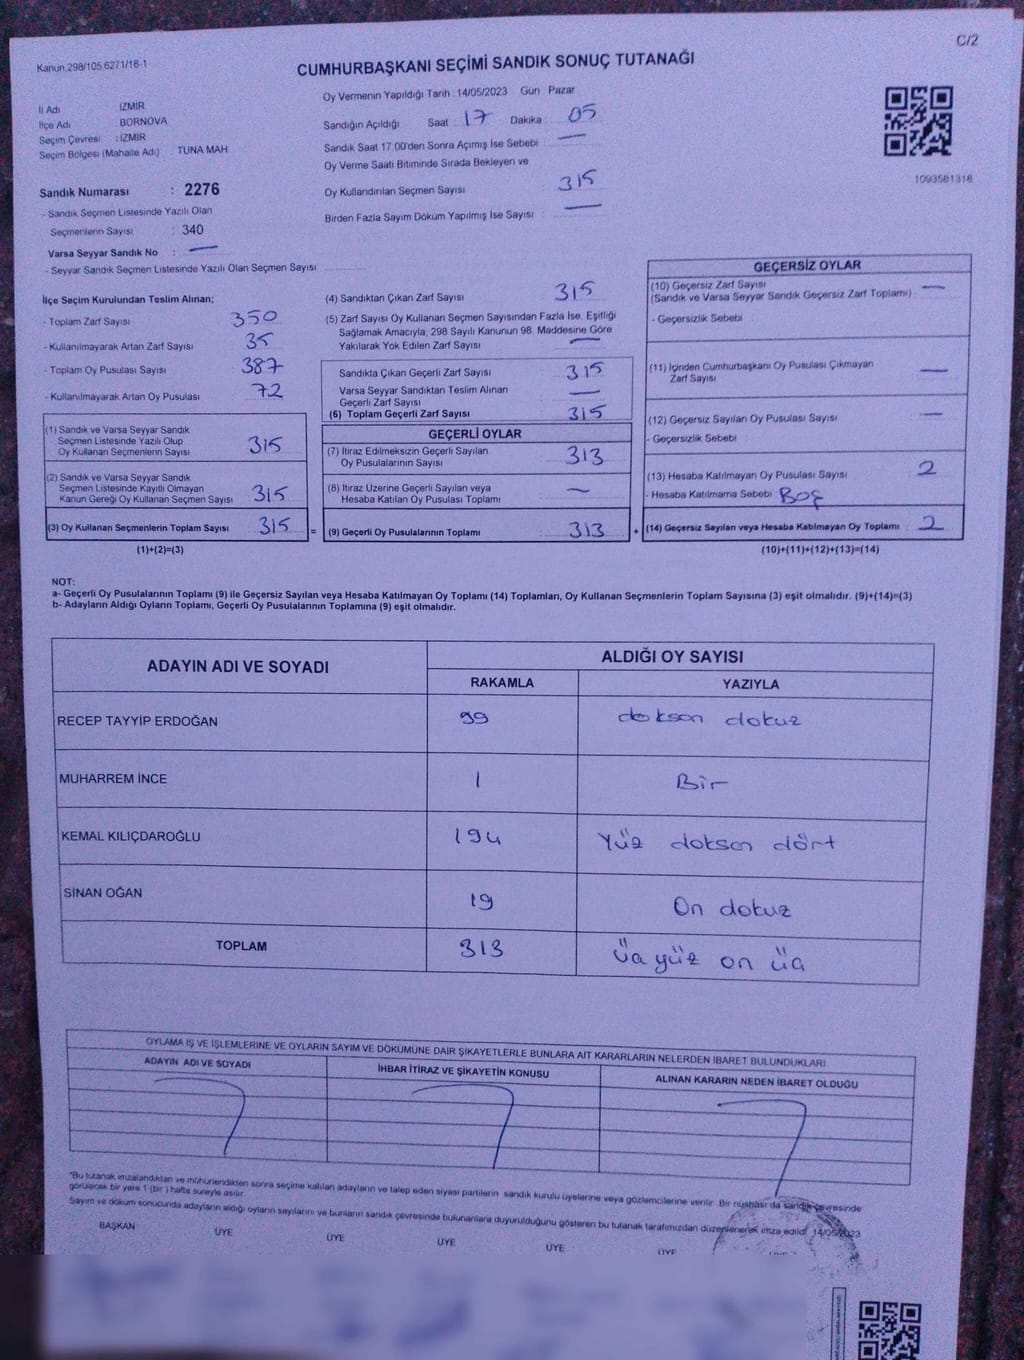 C/2
Kanun.298/105.6271/18-1
CUMHURBAŞKANI SEÇİMİ SANDIK SONUÇ TUTANAĞI
İl Adı İZMİR
İlçe Adı BORNOVA
Seçim Çevresi : İZMİR
Seçim Bölgesi (Mahalle Adı) : TUNA MAH.
Sandık Numarası : 2276
- Sandık Seçmen Listesinde Yazılı Olan
Seçmenlerin Sayısı : 340
Varsa Seyyar Sandık No : —
- Seyyar Sandık Seçmen Listesinde Yazılı Olan Seçmen Sayısı
Oy Vermenin Yapıldığı Tarih :14/05/2023 Gün : Pazar
Sandığın Açıldığı Saat : 17 Dakika : 05
Sandık Saat 17.00'den Sonra Açımış İse Sebebi : —
Oy Verme Saati Bitiminde Sırada Bekleyen ve
Oy Kullandırılan Seçmen Sayısı : 315
Birden Fazla Sayım Döküm Yapılmış İse Sayısı : —
1093581318
İlçe Seçim Kurulundan Teslim Alınan;
- Toplam Zarf Sayısı : 350
- Kullanılmayarak Artan Zarf Sayısı : 35
- Toplam Oy Pusulası Sayısı : 387
- Kullanılmayarak Artan Oy Pusulası : 72
(1) Sandık ve Varsa Seyyar Sandık
Seçmen Listesinde Yazılı Olup
Oy Kullanan Seçmenlerin Sayısı : 315
(2) Sandık ve Varsa Seyyar Sandık
Seçmen Listesinde Kayıtlı Olmayan
Kanun Gereği Oy Kullanan Seçmen Sayısı : 315
(3) Oy Kullanan Seçmenlerin Toplam Sayısı : 315 =
(1)+(2)=(3)
(4) Sandıktan Çıkan Zarf Sayısı : 315
(5) Zarf Sayısı Oy Kullanan Seçmen Sayısından Fazla İse, Eşitliği
Sağlamak Amacıyla, 298 Sayılı Kanunun 98. Maddesine Göre
Yakılarak Yok Edilen Zarf Sayısı : —
Sandıkta Çıkan Geçerli Zarf Sayısı : 315
Varsa Seyyar Sandıktan Teslim Alınan
Geçerli Zarf Sayısı : —
(6) Toplam Geçerli Zarf Sayısı : 315
GEÇERLİ OYLAR
(7) İtiraz Edilmeksizin Geçerli Sayılan
Oy Pusulalarının Sayısı : 313
(8) İtiraz Üzerine Geçerli Sayılan veya
Hesaba Katılan Oy Pusulası Toplamı : —
(9) Geçerli Oy Pusulalarının Toplamı : 313 +
GEÇERSİZ OYLAR
(10) Geçersiz Zarf Sayısı : —
(Sandık ve Varsa Seyyar Sandık Geçersiz Zarf Toplamı)
- Geçersizlik Sebebi :
(11) İçinden Cumhurbaşkanı Oy Pusulası Çıkmayan
Zarf Sayısı : —
(12) Geçersiz Sayılan Oy Pusulası Sayısı : —
- Geçersizlik Sebebi :
(13) Hesaba Katılmayan Oy Pusulası Sayısı : 2
- Hesaba Katılmama Sebebi : Boş
(14) Geçersiz Sayılan veya Hesaba Katılmayan Oy Toplamı : 2
(10)+(11)+(12)+(13)=(14)
NOT:
a- Geçerli Oy Pusulalarının Toplamı (9) ile Geçersiz Sayılan veya Hesaba Katılmayan Oy Toplamı (14) Toplamları, Oy Kullanan Seçmenlerin Toplam Sayısına (3) eşit olmalıdır. (9)+(14)=(3)
b- Adayların Aldığı Oyların Toplamı, Geçerli Oy Pusulalarının Toplamına (9) eşit olmalıdır.
ADAYIN ADI VE SOYADI ALDIĞI OY SAYISI
RAKAMLA YAZIYLA
RECEP TAYYİP ERDOĞAN 99 doksan dokuz
MUHARREM İNCE 1 Bir
KEMAL KILIÇDAROĞLU 194 Yüz doksan dört
SİNAN OĞAN 19 On dokuz
TOPLAM 313 üç yüz on üç
OYLAMA İŞ VE İŞLEMLERİNE VE OYLARIN SAYIM VE DÖKÜMÜNE DAİR ŞİKAYETLERLE BUNLARA AİT KARARLARIN NELERDEN İBARET BULUNDUKLARI
ADAYIN ADI VE SOYADI İHBAR İTİRAZ VE ŞİKAYETİN KONUSU ALINAN KARARIN NEDEN İBARET OLDUĞU
*Bu tutanak imzalandıktan ve mühürlendikten sonra seçime katılan adayların ve talep eden siyasi partilerin sandık kurulu üyelerine veya gözlemcilerine verilir. Bir nüshası da sandık çevresinde
görülecek bir yere 1 (bir) hafta süreyle asılır.
Sayım ve döküm sonucunda adayların aldığı oyların sayılarını ve bunların sandık çevresinde bulunanlara duyurulduğunu gösteren bu tutanak tarafımızdan düzenlenerek imza edildi. 14/05/2023
BAŞKAN ÜYE ÜYE ÜYE ÜYE ÜYE